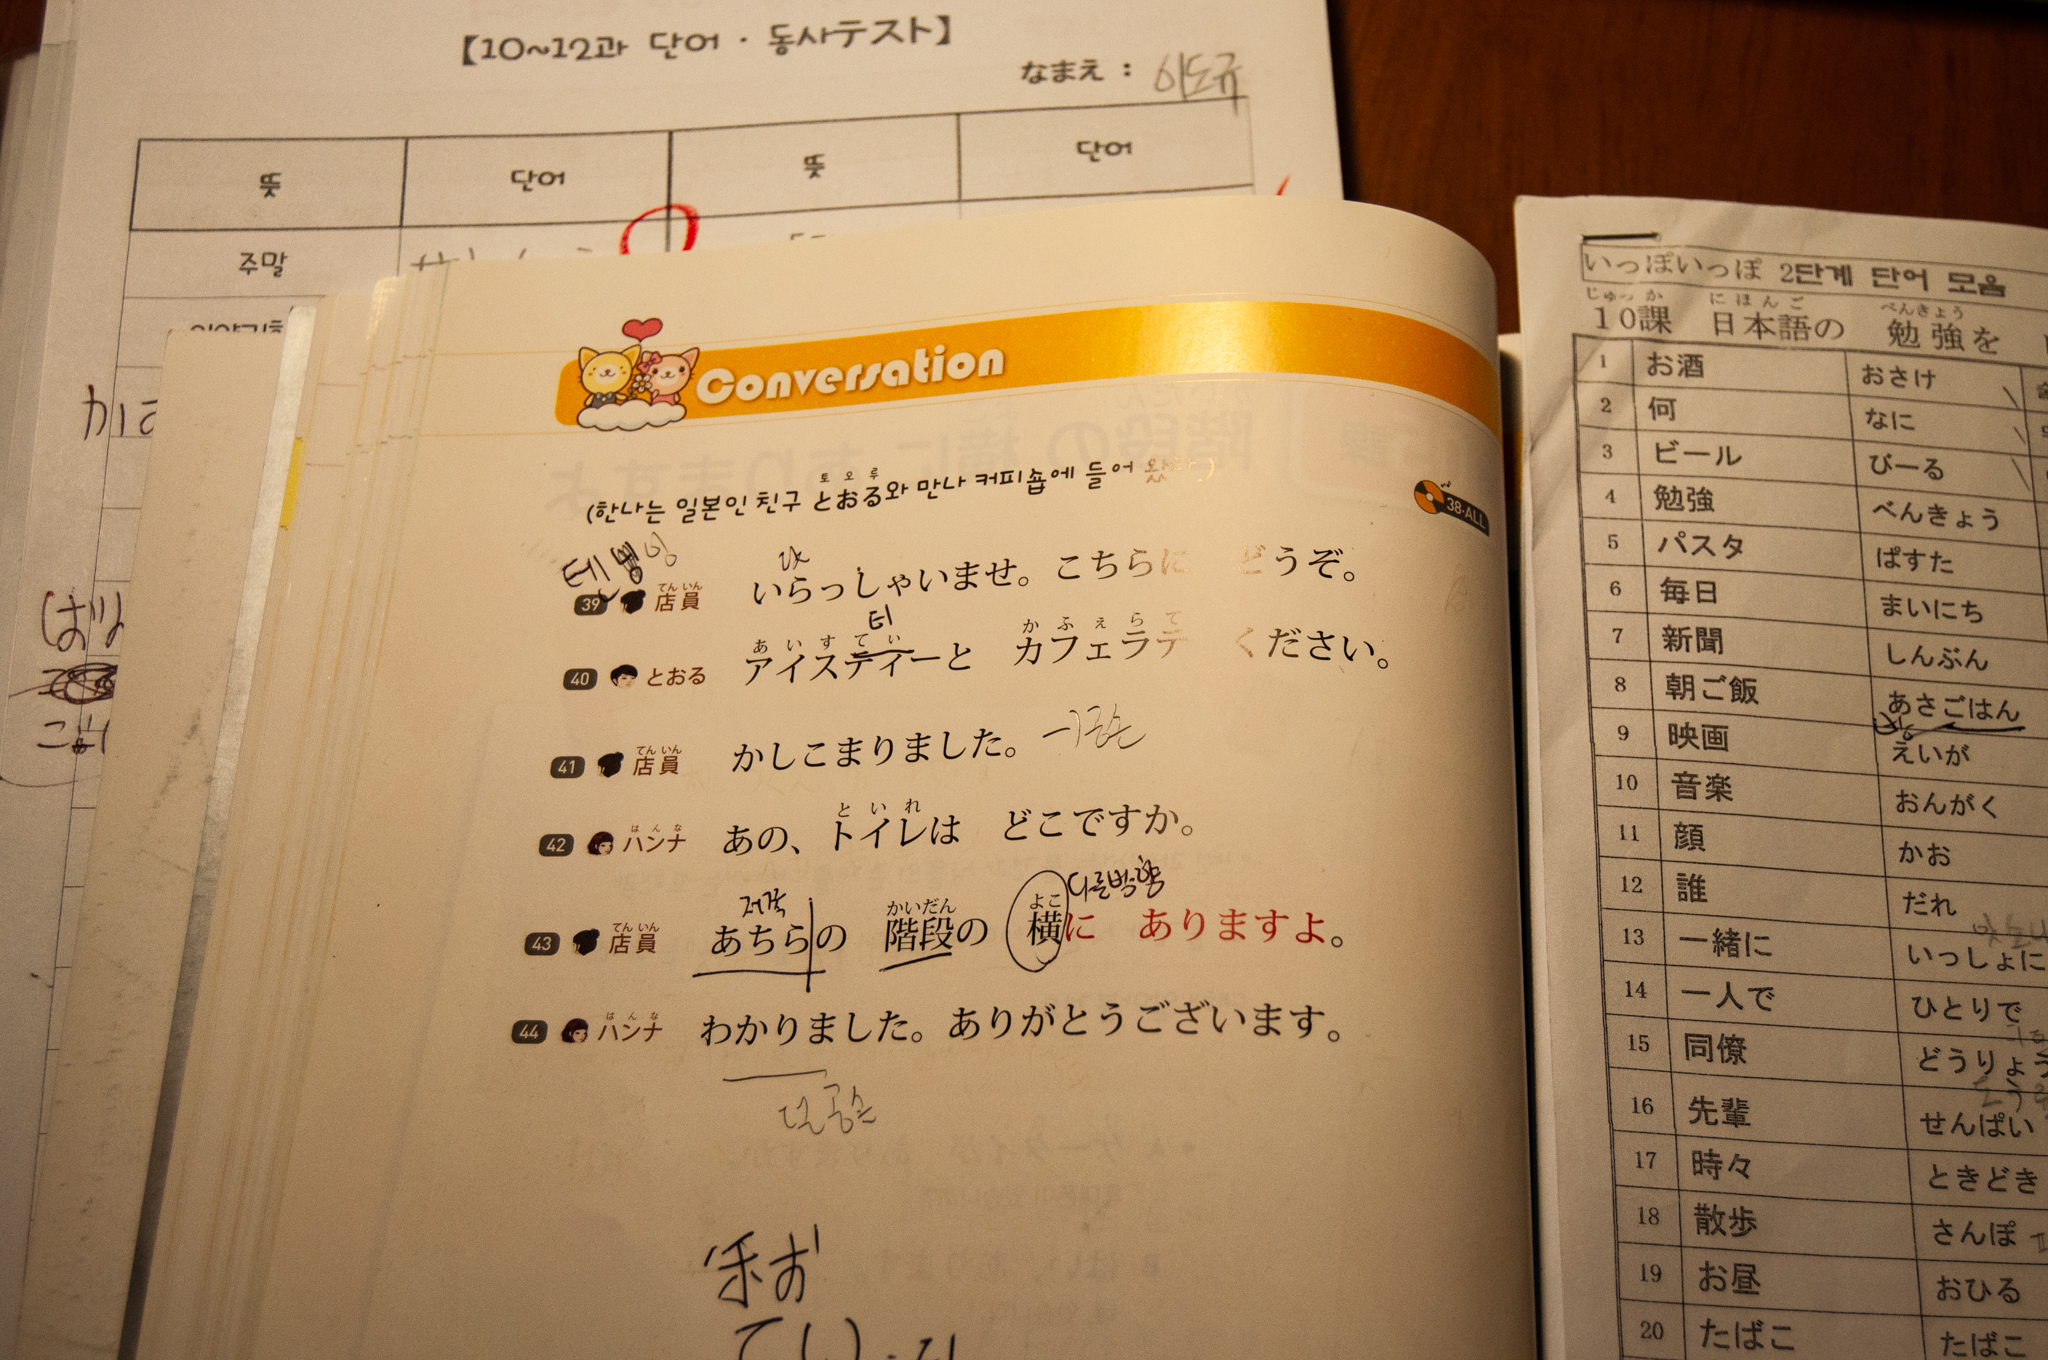 【10~12과 단어 · 동사テスト】
なまえ : 이도규
뜻 단어 뜻 단어
주말
Conversation
토오루
(한나는 일본인 친구 とおる와 만나 커피숍에 들어 왔다)
38-ALL
てんいん
39 店員 いらっしゃいませ。 こちらに どうぞ。
티
あいすてぃ かふぇらて
40 とおる アイスティーと カフェラテ ください。
てんいん
41 店員 かしこまりました。
はんな といれ
42 ハンナ あの、トイレは どこですか。
저쪽
てんいん かいだん よこ
43 店員 あちらの 階段の 横に ありますよ。
はんな
44 ハンナ わかりました。ありがとうございます。
いっぽいっぽ 2단계 단어 모음
じゅっか にほんご べんきょう
10課 日本語の 勉強を
1 お酒 おさけ
2 何 なに
3 ビール びーる
4 勉強 べんきょう
5 パスタ ぱすた
6 毎日 まいにち
7 新聞 しんぶん
8 朝ご飯 あさごはん
9 映画 えいが
10 音楽 おんがく
11 顔 かお
12 誰 だれ
13 一緒に いっしょに
14 一人で ひとりで
15 同僚 どうりょう
16 先輩 せんぱい
17 時々 ときどき
18 散歩 さんぽ
19 お昼 おひる
20 たばこ たばこ